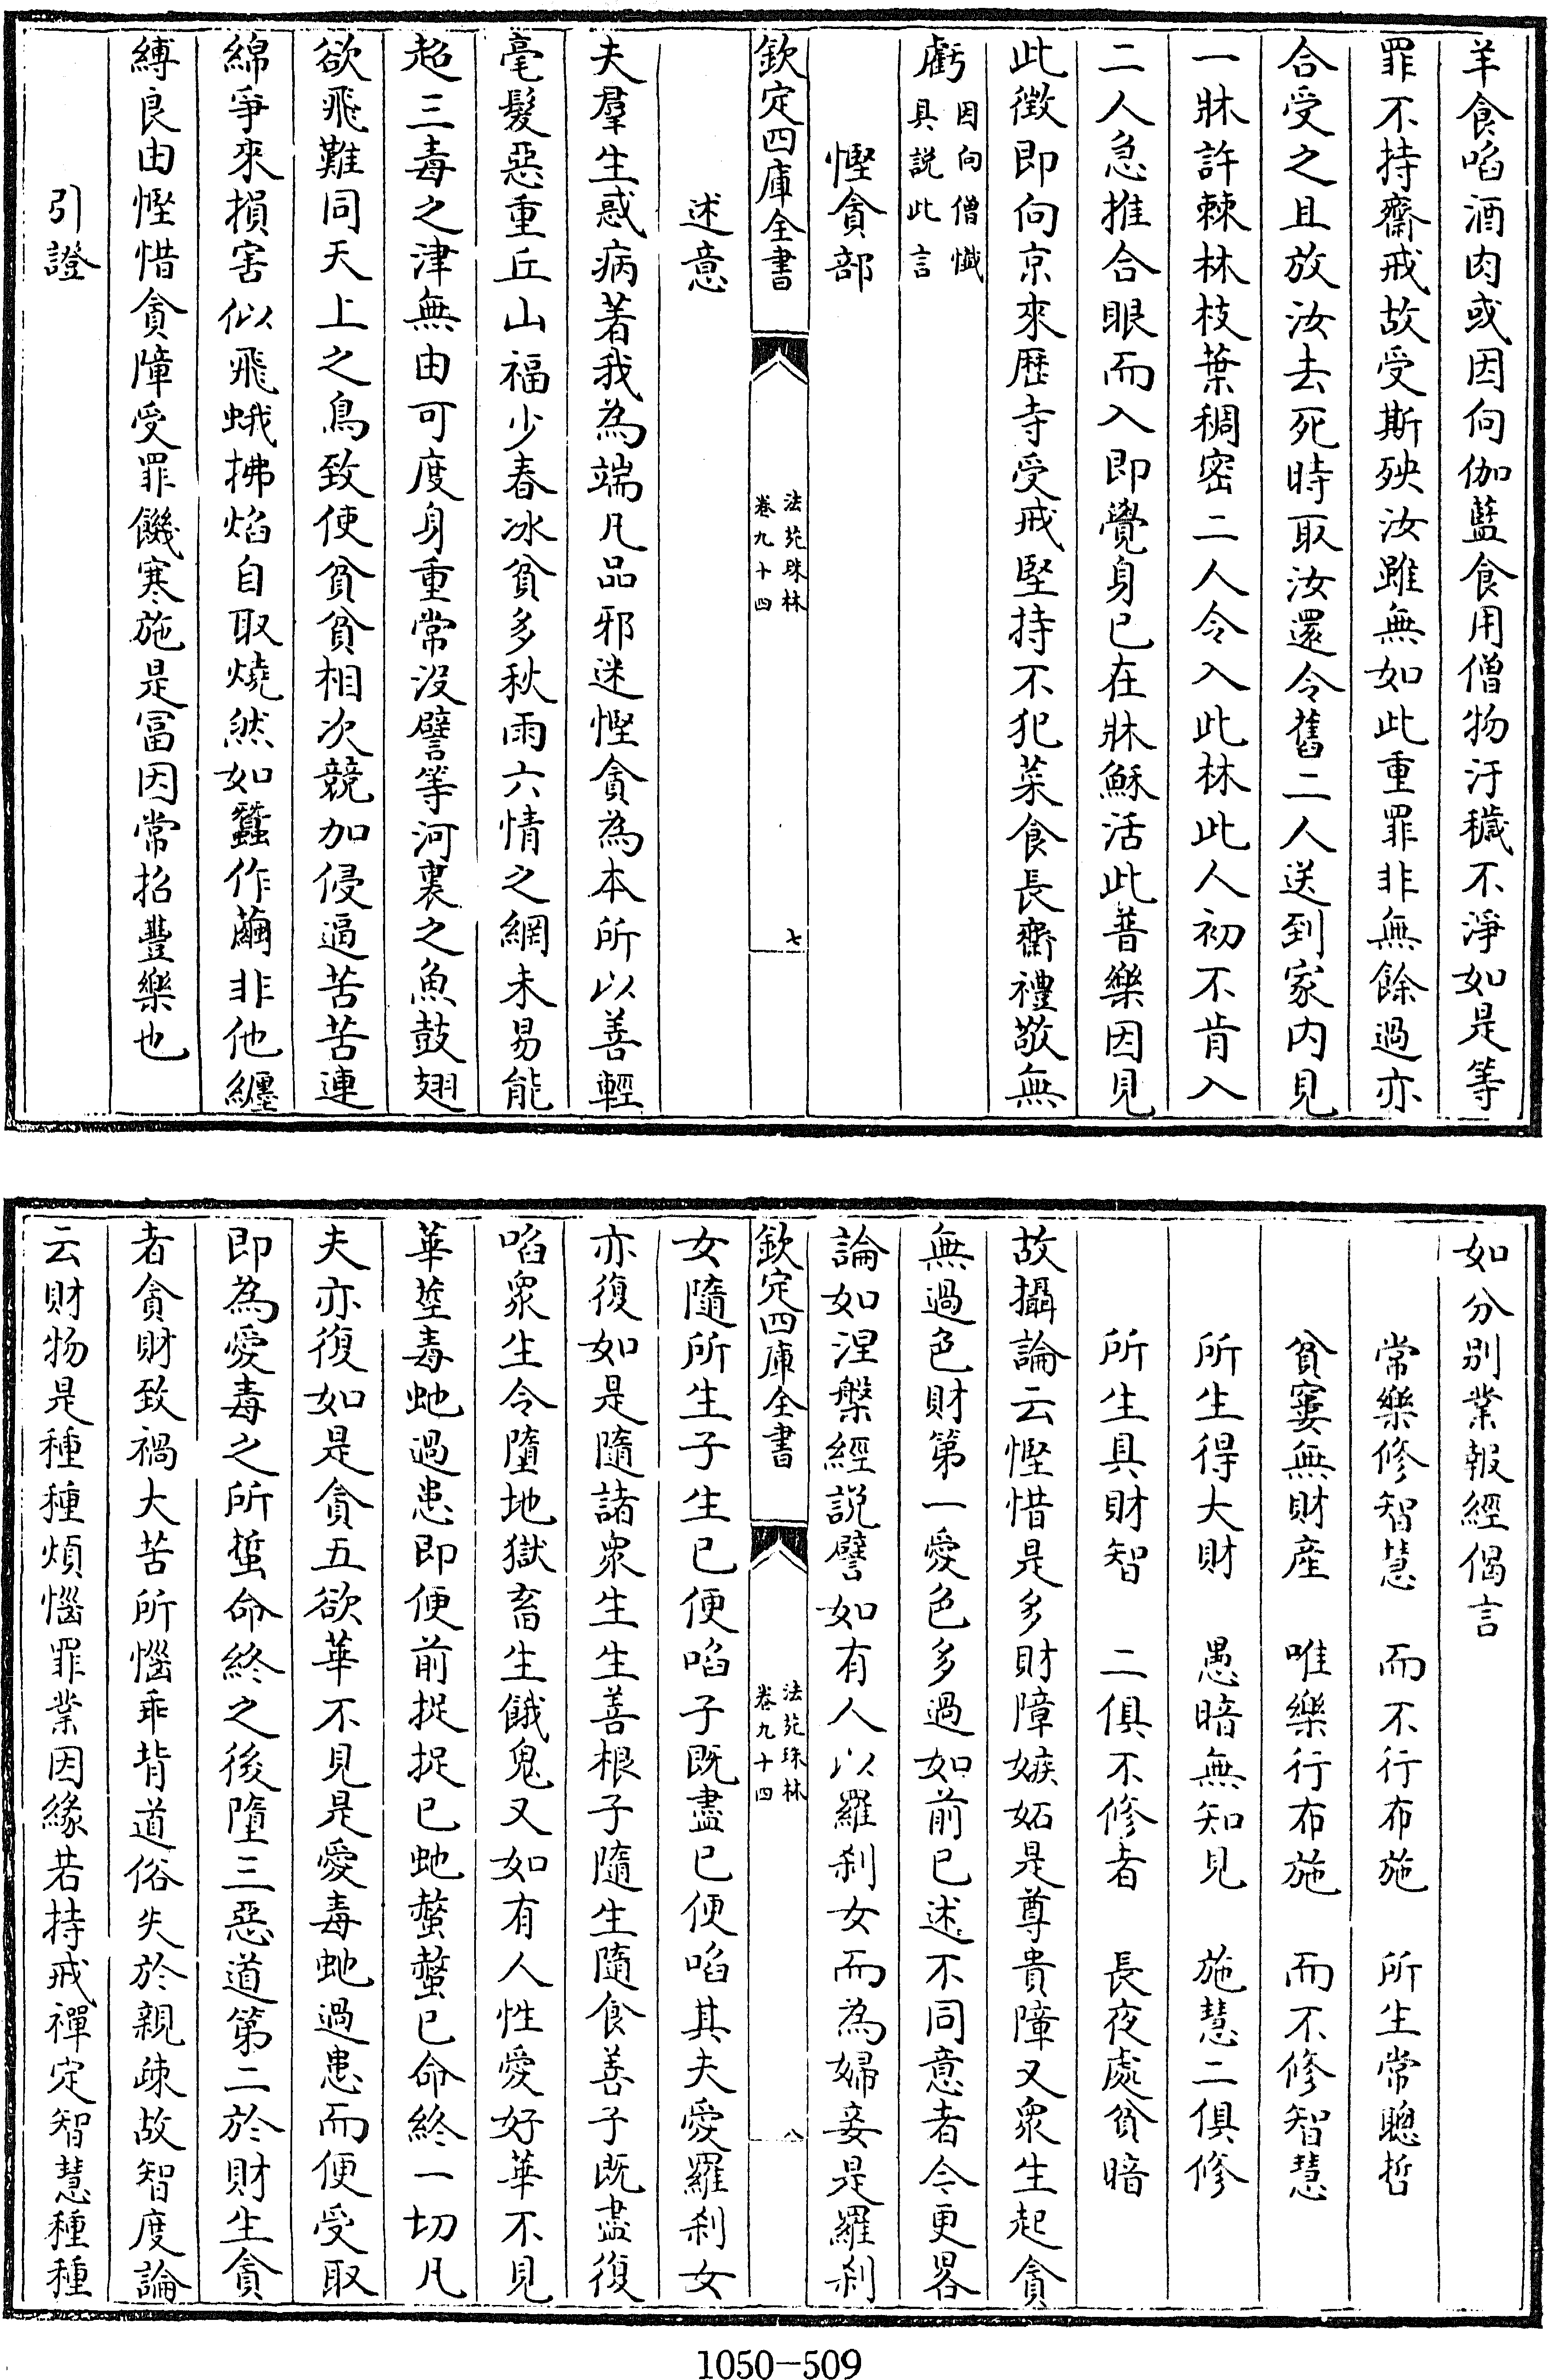 羊食啗酒肉或因向伽藍食用僧物汙穢不淨如是等
罪不持齋戒故受斯殃汝雖無如此重罪非無餘過亦
合受之且放汝去死時取汝還令舊二人送到家内見
一牀許棘林枝葉稠密二人令入此林此人初不肯入
二人急推合眼而入即覺身已在牀穌活此普樂因見
此徴即向京來歴寺受戒堅持不犯菜食長齋禮敬無
虧因向僧懺具説此言
慳貪部
欽定四庫全書
法苑珠林
卷九十四
七
述意
夫羣生惑病著我為端凡品邪迷慳貪為本所以善輕
毫髮惡重丘山福少春冰貧多秋雨六情之網未易能
超三毒之津無由可度身重常没譬等河裏之魚鼓翅
欲飛難同天上之鳥致使貧貧相次競加侵逼苦苦連
綿爭來損害似飛蛾拂焰自取燒然如蠶作繭非他纏
縛良由慳惜貪障受罪饑寒施是冨因常招豐樂也
引證
如分别業報經偈言
常樂修智慧　而不行布施　所生常聰哲
貧窶無財産　唯樂行布施　而不修智慧
所生得大財　愚暗無知見　施慧二俱修
所生具財智　二俱不修者　長夜處貧暗
故攝論云慳惜是多財障嫉妬是尊貴障又衆生起貪
無過色財第一愛色多過如前已述不同意者今更畧
論如涅槃經説譬如有人以羅刹女而為婦妾是羅刹
欽定四庫全書
法苑珠林
卷九十四
八
女隨所生子生已便啗子既盡已便啗其夫愛羅刹女
亦復如是隨諸衆生生善根子隨生隨食善子既盡復
啗衆生令墮地獄畜生餓鬼又如有人性愛好華不見
華莖毒虵過患即便前捉捉已虵螫螫已命終一切凡
夫亦復如是貪五欲華不見是愛毒虵過患而便受取
即為愛毒之所蜇命終之後墮三惡道第二於財生貪
者貪財致禍大苦所惱乖背道俗失於親疎故智度論
云財物是種種煩惱罪業因緣若持戒禪定智慧種種
1050-509